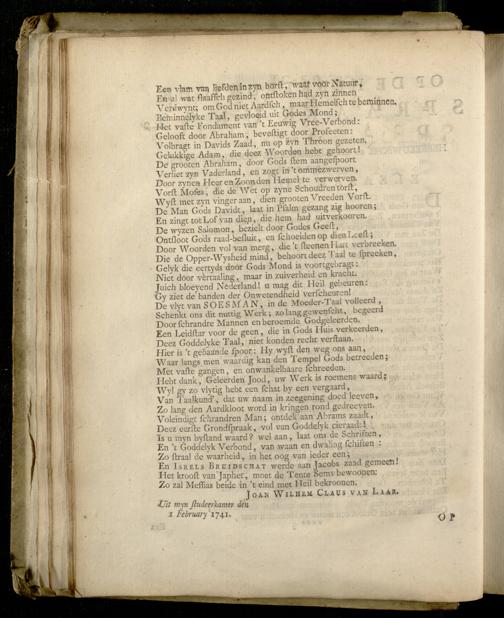 Een vlam van liefden in zyn borst, waar voor Natuur,
En al wat slaafsch gezind, ontstoken had zyn zinnen
Verdwynt; om God niet Aardsch, maar Hemelsch te beminnen.
Beminnelyke Taal, gevloeid uit Godes Mond;
Het vaste Fondament van 't Eeuwig Vree-Verbond:
Gelooft door Abraham, bevestigt door Profeeten:
Volbragt in Davids Zaad, nu op zyn Throon gezeten,
Gelukkige Adam, die deez Woorden hebt gehoort!
De grooten Abraham, door Gods stem aangespoort
Verliet zyn Vaderland, en zogt in 't ommezwerven,
Door zynen Heer en Zoon den Hemel te verwerven.
Vorst Moses, die de Wet op zyne Schoudren torst,
Wyst met zyn vinger aan, dien grooten Vreeden Vorst.
De Man Gods Davidt, laat in Psalm gezang zig hooren;
En zingt tot Lof van dien, die hem had uitverkooren.
De wyzen Salomon, bezielt door Godes Geest,
Ontsloot Gods raad-besluit, en schoeiden op dien Leest;
Door Woorden vol van merg, die 't steenen Hart verbreeken.
Die de Opper-Wysheid mind, behoort deez Taal te spreeken,
Gelyk die eertyds door Gods Mond is voortgebragt:
Niet door vertaaling, maar in zuiverheid en kracht.
Juich bloeyend Nederland! u mag dit Heil gebeuren:
Gy ziet de banden der Onwetendheid verscheuren!
De vlyt van SOESMAN, in de Moeder-Taal volleerd,
Schenkt ons dit nuttig Werk; zo lang gewenscht, begeerd
Door schrandre Mannen en beroemde Godgeleerden.
Een Leidstar voor de geen, die in Gods Huis verkeerden,
Deez Goddelyke Taal, niet konden recht verstaan.
Hier is 't gebaande spoor: Hy wyst den weg ons aan,
Waar langs men waardig kan den Tempel Gods betreeden;
Met vaste gangen, en onwankelbaare schreeden.
Hebt dank, Geleerden Jood, uw Werk is roemens waard;
Wyl gy zo vlytig hebt een schat by een vergaard,
Van Taalkund', dat uw naam in zeegening doed leeven,
Zo lang den Aardkloot word in kringen rond gedreeven.
Voleindigt schrandren Man; ontdek aan Abrams zaadt,
Deez eerste Grondspraak, vol van Goddelyk cieraad:
Is u myn bystand waard? wel aan, laat ons de Schriften,
En 't Goddelyk Verbond, van waan en dwaling schiften:
Zo straal de waarheid, in het oog van ieder een;
En ISRELS BREIDSCHAT werde aan Jacobs zaad gemeen!
Het kroost van Japhet, moet de Tente Sems bewoonen:
Zo zal Messias beide in 't eind met Heil bekroonen.
JOAN WILHEM CLAUS VAN LAAR.
Uit myn studeerkamer den
2 February 1741.
OP